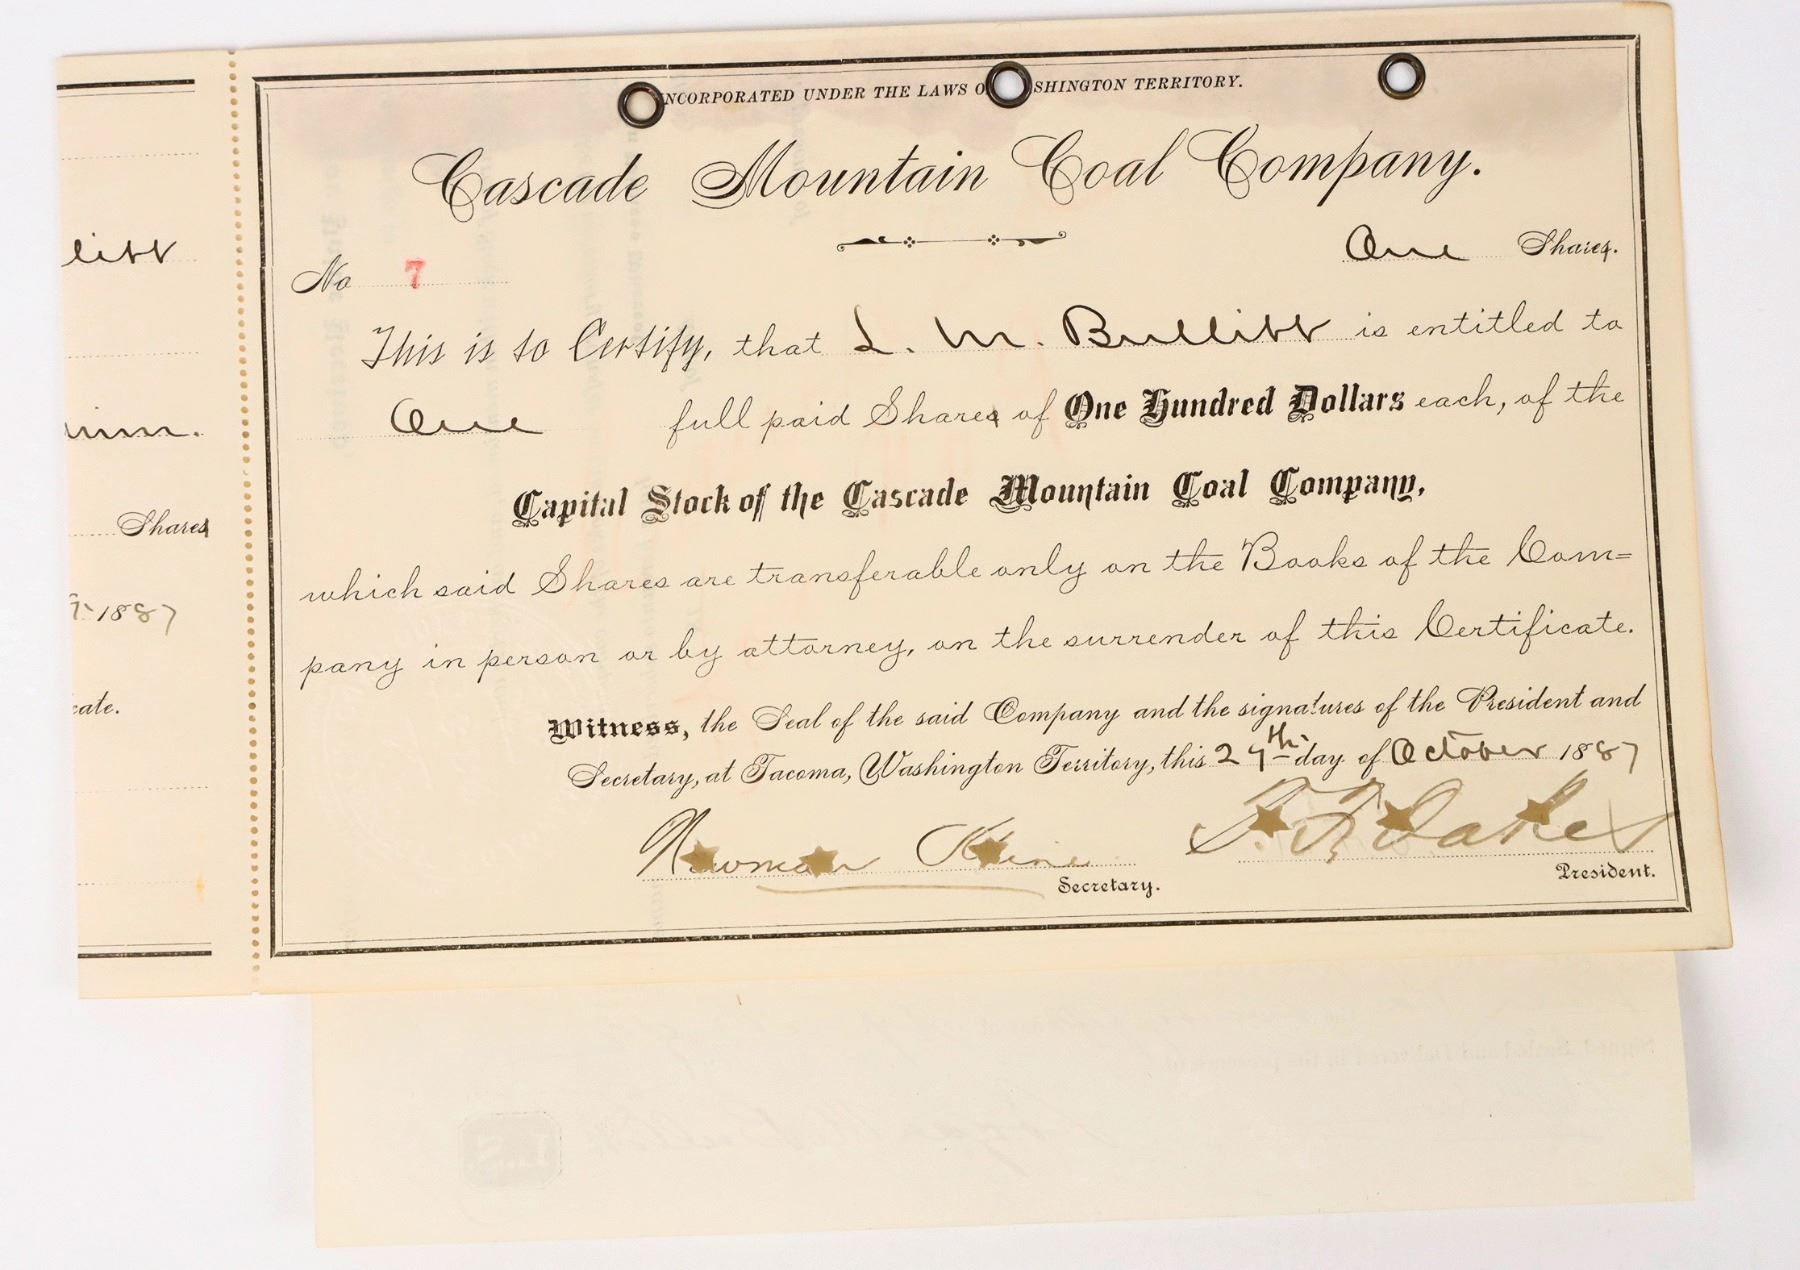 INCORPORATED UNDER THE LAWS O SHINGTON TERRITORY.
Cascade Mountain Coal Company.
One Shares.
No 7
This is to Certify, that L. M. Bullitt is entitled to
One full paid Shares of One Hundred Dollars each, of the
Capital Stock of the Cascade Mountain Coal Company,
which said Shares are transferable only on the Books of the Com=
pany in person or by attorney, on the surrender of this Certificate.
Witness, the Seal of the said Company and the signatures of the President and
Secretary, at Tacoma, Washington Territory, this 27th day of October 1887
Newman Kline
Secretary.
T. F. Oakes
President.
llitt
Shares
1887
cate.
L.S.